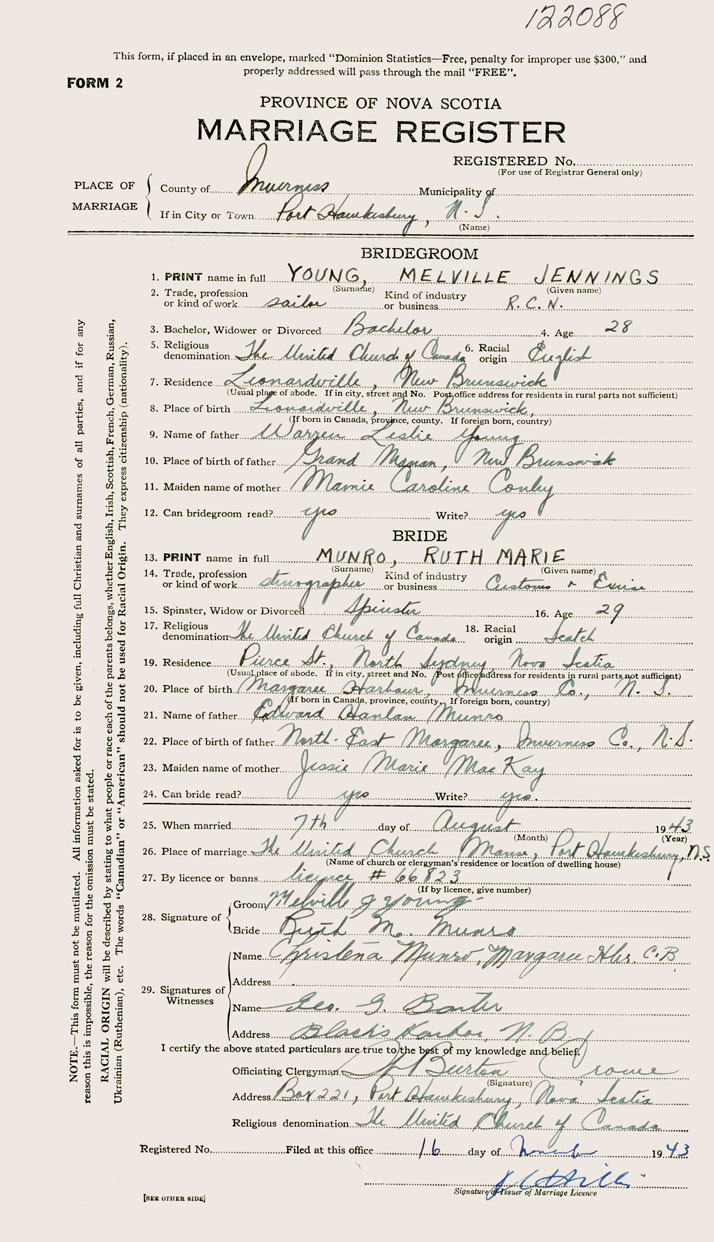 122088
This form, if placed in an envelope, marked "Dominion Statistics—Free, penalty for improper use $300," and
properly addressed will pass through the mail "FREE".
FORM 2
PROVINCE OF NOVA SCOTIA
MARRIAGE REGISTER
REGISTERED No.
(For use of Registrar General only)
PLACE OF MARRIAGE
County of Inverness Municipality of
If in City or Town Port Hawkesbury, N.S.
(Name)
BRIDEGROOM
1. PRINT name in full YOUNG, MELVILLE JENNINGS
(Surname) (Given name)
2. Trade, profession or kind of work sailor Kind of industry or business R.C.N.
3. Bachelor, Widower or Divorced Bachelor 4. Age 28
5. Religious denomination The United Church of Canada 6. Racial origin English
7. Residence Leonardville, New Brunswick
(Usual place of abode. If in city, street and No. Post office address for residents in rural parts not sufficient)
8. Place of birth Leonardville, New Brunswick,
(If born in Canada, province, county. If foreign born, country)
9. Name of father Warren Leslie Young
10. Place of birth of father Grand Manan, New Brunswick
11. Maiden name of mother Mamie Caroline Conley
12. Can bridegroom read? yes Write? yes
BRIDE
13. PRINT name in full MUNRO, RUTH MARIE
(Surname) (Given name)
14. Trade, profession or kind of work stenographer Kind of industry or business Customs & Excise
15. Spinster, Widow or Divorced Spinster 16. Age 29
17. Religious denomination The United Church of Canada 18. Racial origin Scotch
19. Residence Pierce St., North Sydney, Nova Scotia
(Usual place of abode. If in city, street and No. Post office address for residents in rural parts not sufficient)
20. Place of birth Margaree Harbour, Inverness Co., N.S.
(If born in Canada, province, county. If foreign born, country)
21. Name of father Edward Hanlan Munro
22. Place of birth of father North-East Margaree, Inverness Co., N.S.
23. Maiden name of mother Jessie Marie MacKay
24. Can bride read? yes Write? yes.
25. When married 7th day of August 1943
(Month) (Year)
26. Place of marriage The United Church Manse, Port Hawkesbury, N.S.
(Name of church or clergyman's residence or location of dwelling house)
27. By licence or banns licence # 66823
(If by licence, give number)
28. Signature of
Groom Melville J Young
Bride Ruth M. Munro
29. Signatures of Witnesses
Name Christena Munro, Margaree Hbr. C.B.
Address
Name Geo. G. Baxter
Address Blacks Harbor, N.B.
I certify the above stated particulars are true to the best of my knowledge and belief.
Officiating Clergyman Burton Crowe
(Signature)
Address Box 221, Port Hawkesbury, Nova Scotia
Religious denomination The United Church of Canada
Registered No. Filed at this office 16 day of November 1943
Signature of Issuer of Marriage Licence
[SEE OTHER SIDE]
NOTE.—This form must not be mutilated. All information asked for is to be given, including full Christian and surnames of all parties, and if for any
reason this is impossible, the reason for the omission must be stated.
RACIAL ORIGIN will be described by stating to what people or race each of the parents belongs, whether English, Irish, Scottish, French, German, Russian,
Ukrainian (Ruthenian), etc. The words "Canadian" or "American" should not be used for Racial Origin. They express citizenship (nationality).